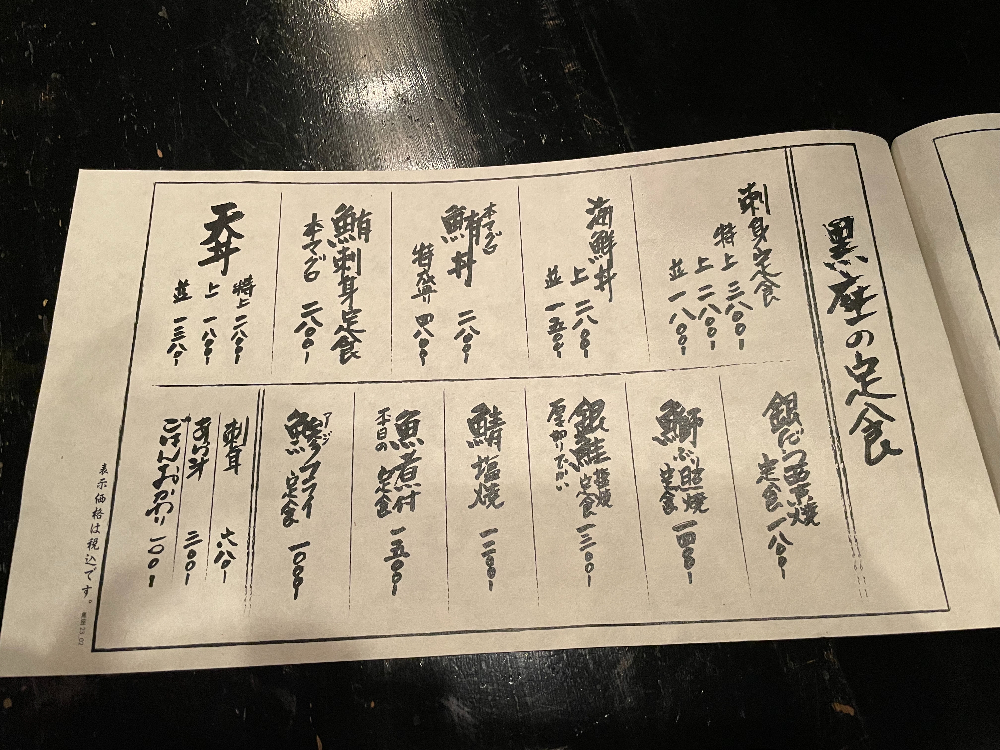 黒座の定食
刺身定食
特上 三八〇〇-
上 二八〇〇-
並 一八〇〇-
海鮮丼
上 二八〇〇-
並 一五〇〇-
本マグロ
鮪丼 二八〇〇-
特盛丼 四八〇〇-
鮪刺身定食
本マグロ 二八〇〇-
天丼
特上 二八〇〇-
上 一八〇〇-
並 一三八〇-
銀だら西京焼
定食 一八〇〇-
鰤ぶり照焼
定食 一四〇〇-
銀鮭塩焼
定食
厚切りでかい 一三〇〇-
鯖塩焼 一二〇〇-
魚煮付
本日の定食 一五〇〇-
アジ
鯵フライ
定食 一〇〇〇-
刺身 六八〇-
あら汁 三〇〇-
ごはんおかわり 一〇〇-
表示価格は税込です。